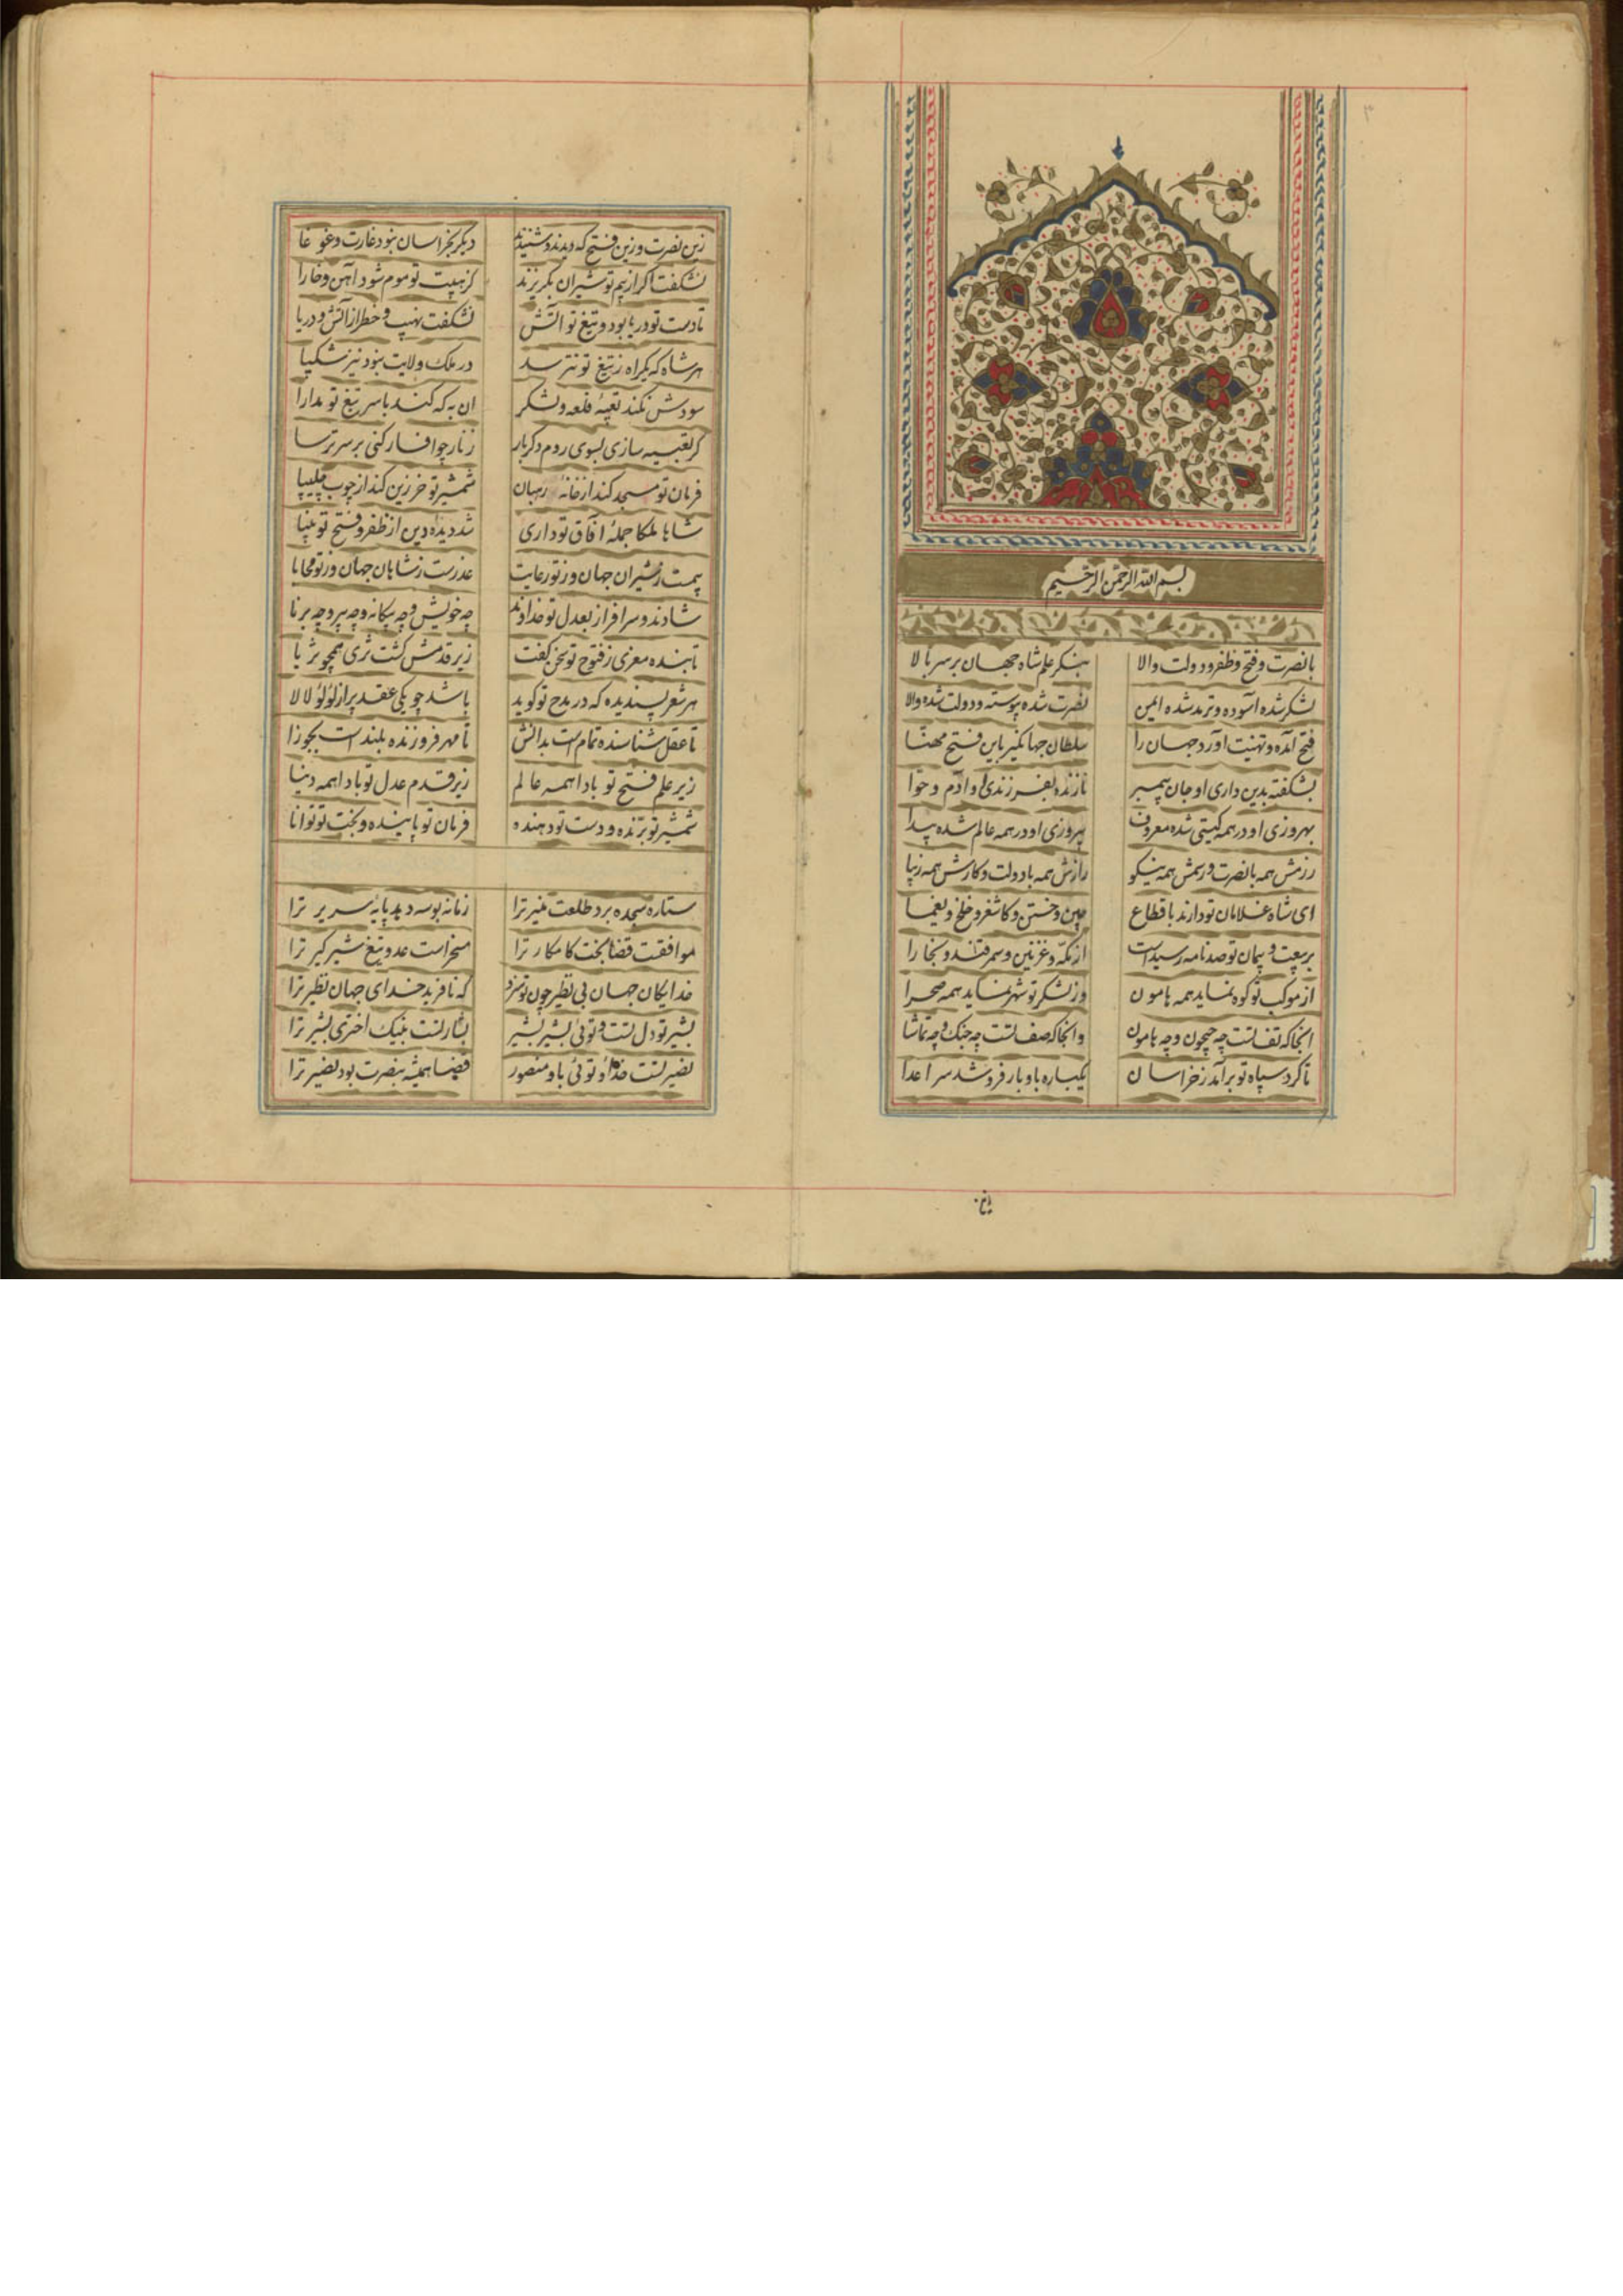 ۳
بسم الله الرحمن الرحیم
بانصرت و فتح و ظفر و دولت والا بنکر علم شاه جهان بر سر بالا
لشکر شده آسوده و ترمد شده ایمن نصرت شده پیوسته و دولت شده والا
فتح آمده و تهنیت آورد جهان را سلطان جهانکیر باین فتح مهنّا
بشکفته بدین داری او جان پیمبر نازنده بفرزندی او آدم و حوّا
بهروزی او در همه کیتی شده معروف پیروزی او در همه عالم شده پیدا
رزمش همه بانصرت و رسمش همه نیکو رازش همه بادولت و کارش همه زیبا
ای شاه غلامان تو دارند باقطاع چین و ختن و کاشغر و خلخ و یغما
بر بیعت و پیمان تو صد نامه رسیداست از مکّه و غزنین و سمرقند و بخارا
از موکب تو کوه نماید همه هامون وز لشکر تو شهر نماید همه صحرا
انجا که تف تست چه جیحون و چه هامون وانجا که صف تست چه جنک و چه تماشا
تا کرد سپاه تو بر آمد ز خراسان یکباره باوبار فرو شد سر اعدا
زین نصرت و زین فتح که دیدند و شنیدند دیکر بخراسان نبود غارت و غوغا
نشکفت اکر از بیم تو شیران بکریزند کز هیبت تو موم شود آهن و خارا
تا دست تو دریا بود و تیغ تو آتش نشکفت نهیب و خطر از آتش و دریا
هر شاه که یکراه ز تیغ تو نترسد در ملک و ولایت نبود نیز شکیبا
سودش نکند تعبیهٔ قلعه و لشکر ان به که کند باسر تیغ تو مدارا
کر تعبیه سازی بسوی روم دکربار زنار چو افسار کنی بر سر ترسا
فرمان تو مسجد کند از خانهٔ رهبان شمشیر تو خرزین کند از چوب چلیپا
شاها ملکا جملهٔ آفاق تو داری شد دیدهٔ دین از ظفر و فتح تو بینا
بیمت ز شیران جهان وز تو رعایت عذرست ز شاهان جهان وز تو محابا
شادند و سرافراز بعدل تو خداوند چه خویش و چه بیکانه و چه پیر و چه برنا
تا بنده معزی ز فتوح تو سخن کفت زیر قدمش کشت ثری همچو ثریا
هر شعر پسندیده که در مدح تو کوید باشد چو یکی عقد پر از لؤلؤ لالا
تا عقل شناسنده تمام است بدانش تا مهر فروزنده بلند است بجوزا
زیر علم فتح تو بادا همه عالم زیر قدم عدل تو بادا همه دنیا
شمشیر تو برّنده و دست تو دهنده فرمان تو پاینده و بخت تو توانا
ستاره سجده برد طلعت منیر ترا زمانه بوسه دهد پایهٔ سریر ترا
موافقست قضا بخت کامکار ترا مسخر است عدو تیغ شیرکیر ترا
خدایکان جهان بی نظیر چون تو سزد که نافرید خدای جهان نظیر ترا
بشیر تو دل تست و توئی بشیر بشیر بشارتست بنیک اختری بشیر ترا
نصیر تست خدا و توئی باو منصور قضا همیشه بنصرت بود نصیر ترا